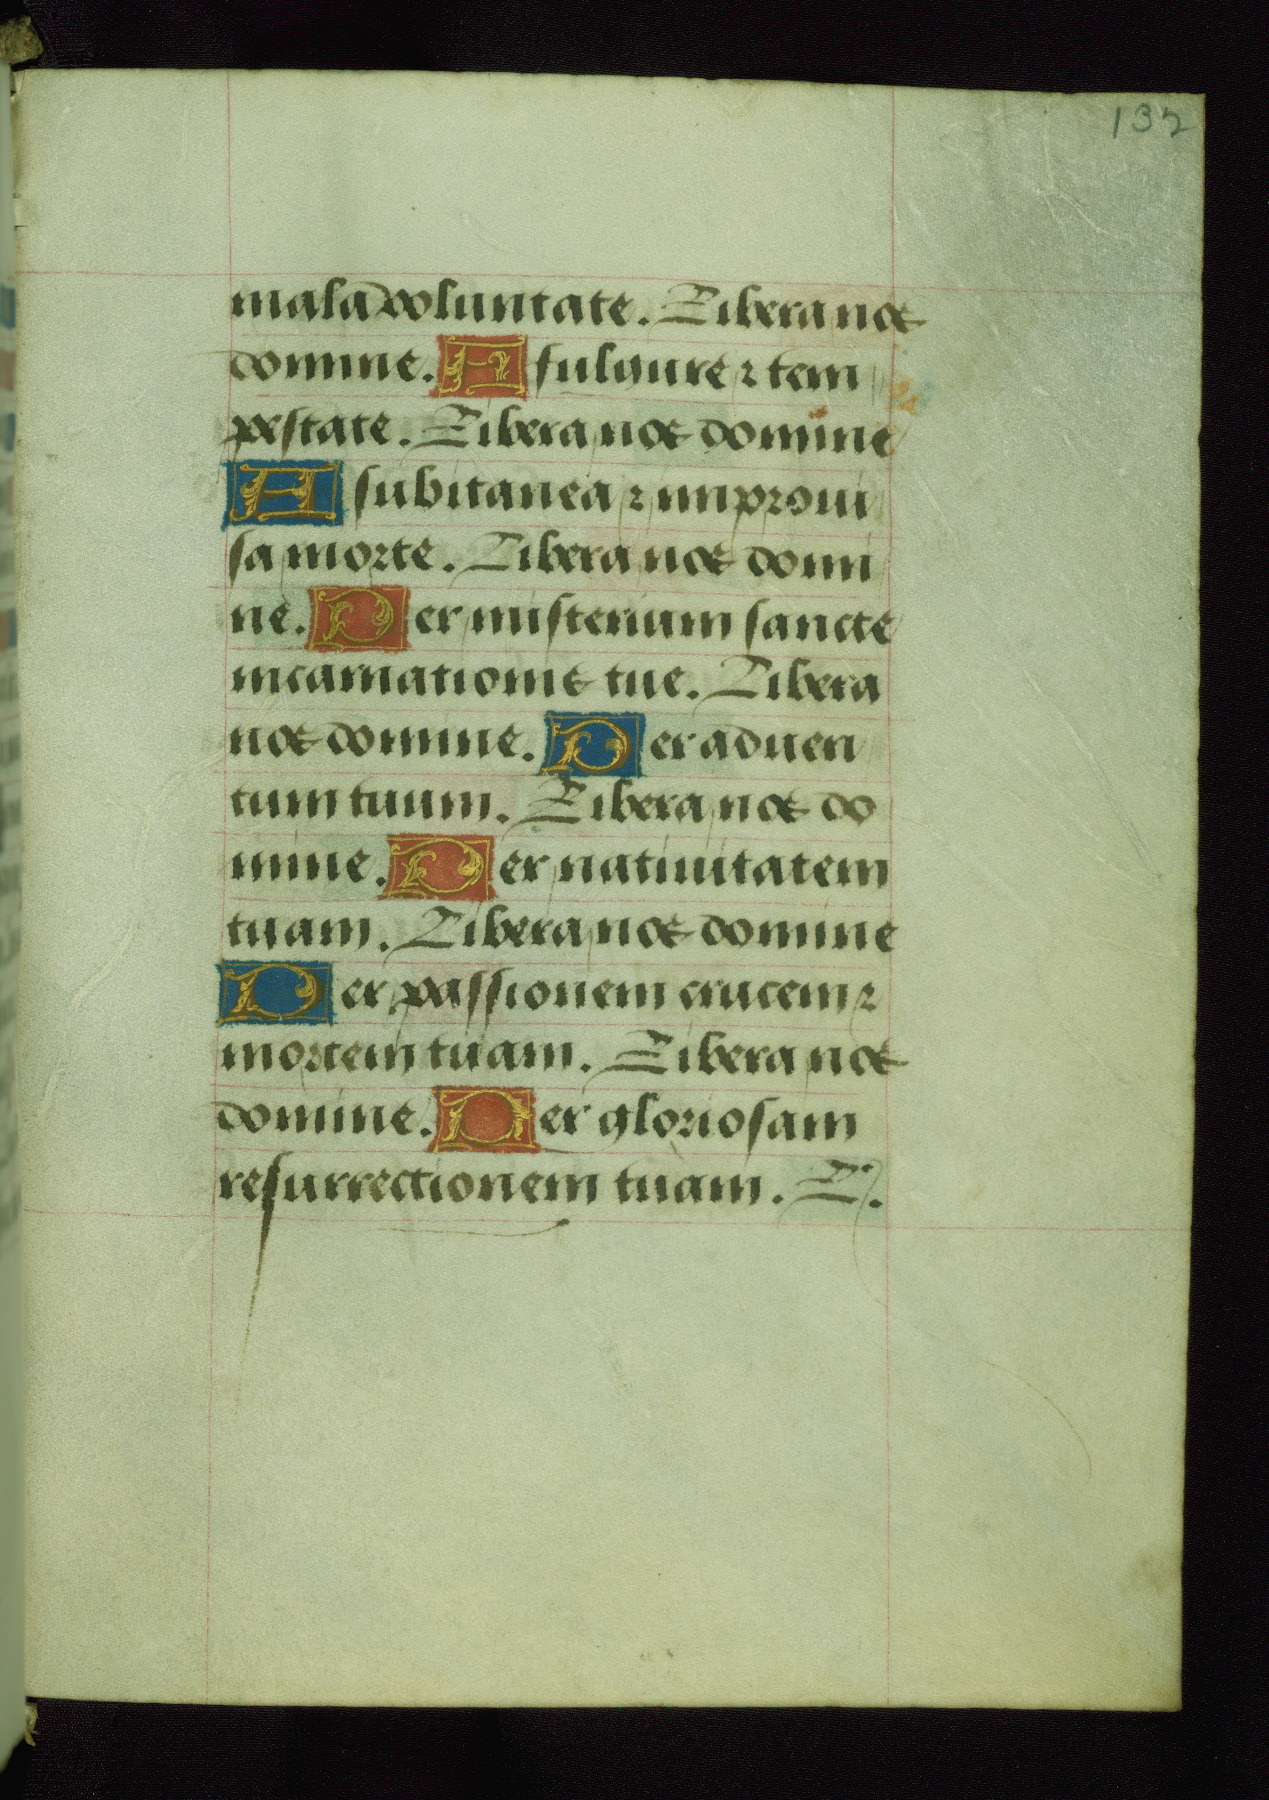 132
mala voluntate. Libera nos
domine. A fulgure ⁊ tem
pestate. Libera nos domine
A subitanea ⁊ improui
sa morte. Libera nos domi
ne. Per misterium sancte
incarnationis tue. Libera
nos domine. Per aduen
tum tuum. Libera nos do
mine. Per natiuitatem
tuam. Libera nos domine
Per passionem crucem ⁊
mortem tuam. Libera nos
domine. Per gloriosam
resurrectionem tuam. L.